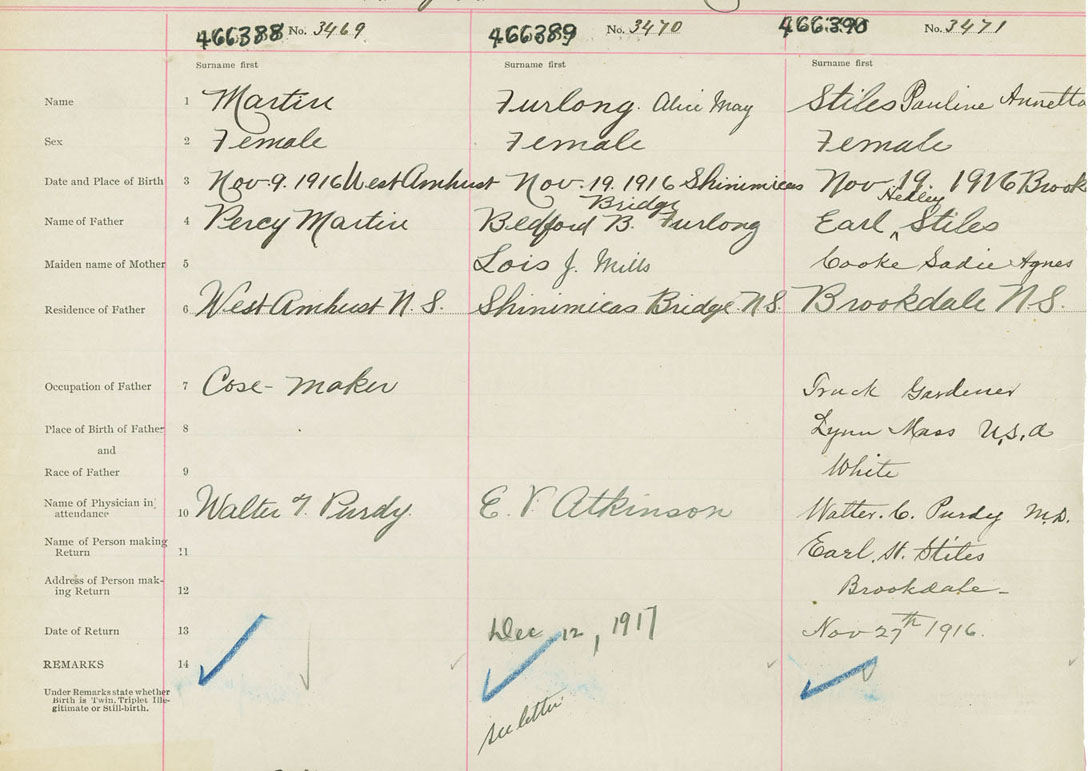 466388 No. 3469 466389 No. 3470 466390 No. 3471
Surname first Surname first Surname first
Name 1 Martin Furlong. Alice May Stiles Pauline Annetta
Sex 2 Female Female Female
Date and Place of Birth 3 Nov. 9. 1916 West Amhust Nov. 19. 1916 Shinimicas Nov. 19. 1916 Brook
Bridge Hedley
Name of Father 4 Percy Martin Bedford B. Furlong Earl ^ Stiles
Maiden name of Mother 5 Lois J. Mills Cooke Sadie Agnes
Residence of Father 6 West Amhust N.S. Shinimicas Bridge. N.S. Brookdale N.S.
Occupation of Father 7 Cose-maker Truck Gardener
Place of Birth of Father 8 Lynn Mass U.S.A
and
Race of Father 9 White
Name of Physician in
attendance 10 Walter T. Purdy. E. V. Atkinson Walter. C. Purdy M.D.
Name of Person making
Return 11 Earl. H. Stiles
Address of Person mak-
ing Return 12 Brookdale-
Date of Return 13 Dec 12, 1917 Nov 27th 1916.
REMARKS 14
Under Remarks state whether
Birth is Twin, Triplet Ille-
gitimate or Still-birth.
see letter